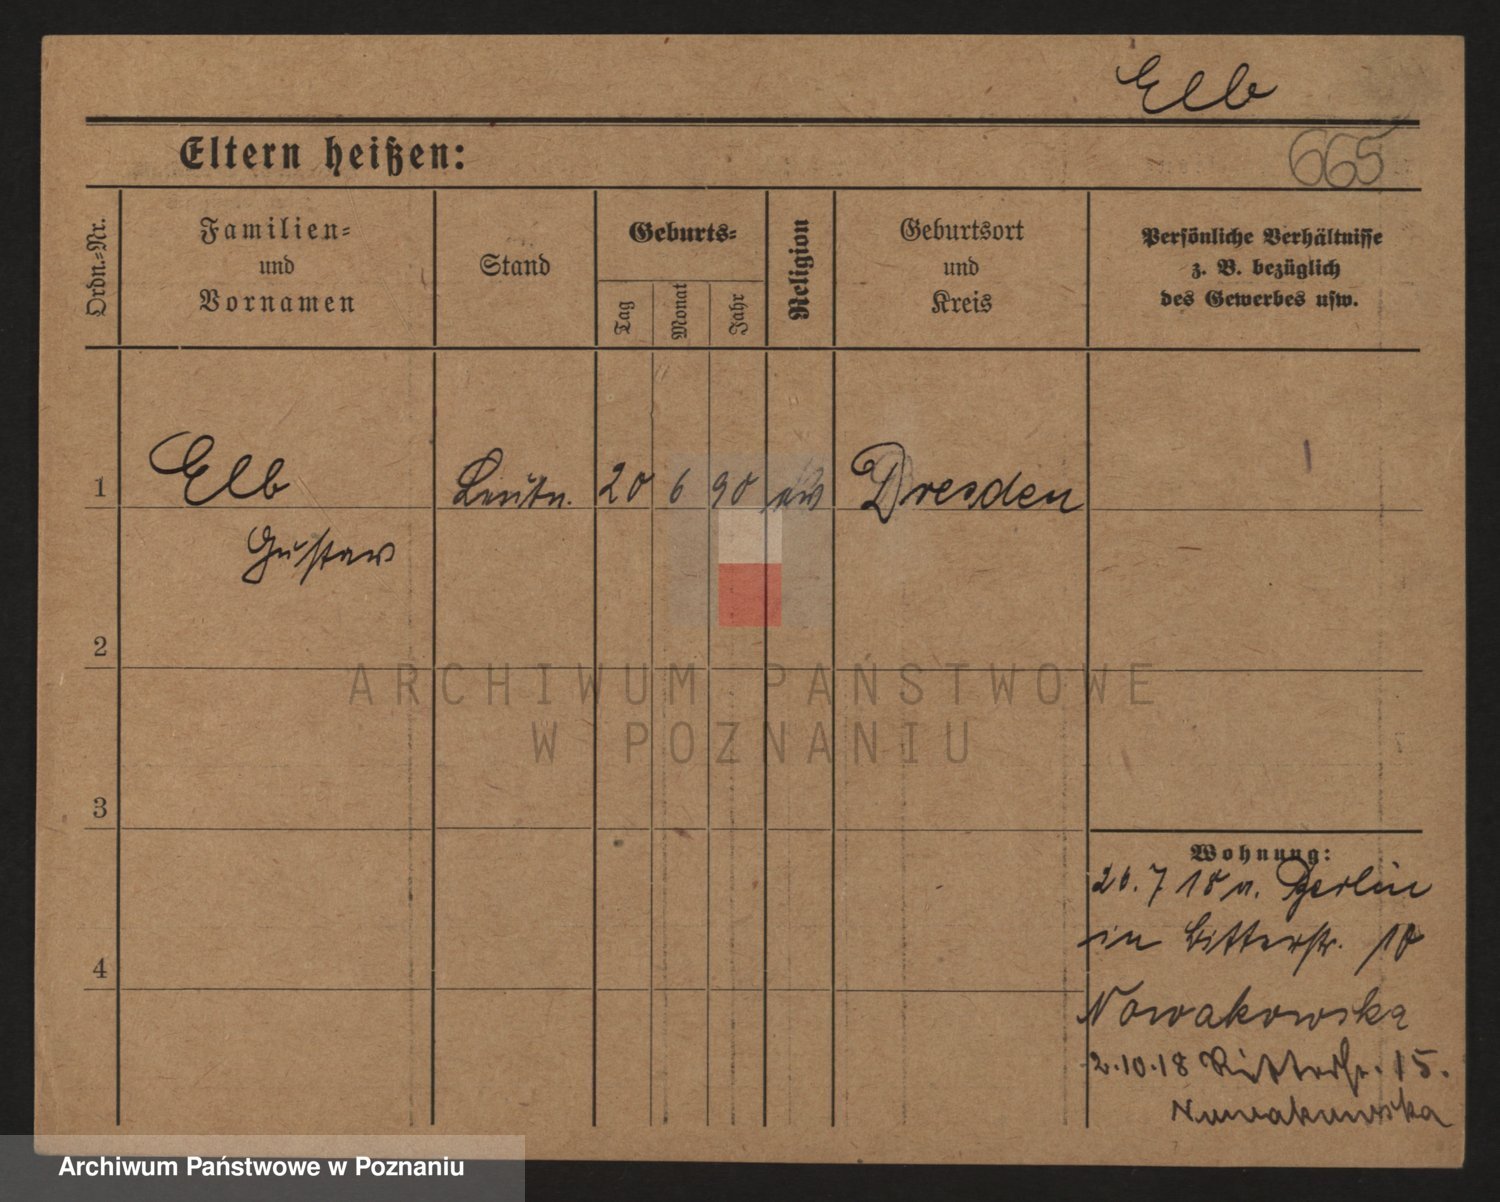 Elb
Eltern heißen:
665
Ordn.-Nr.
Familien-
und
Vornamen
Stand
Geburts-
Tag
Monat
Jahr
Religion
Geburtsort
und
Kreis
Persönliche Verhältnisse
z. B. bezüglich
des Gewerbes usw.
1 Elb Leutn. 20 6 90 ew Dresden
Gustav
2
3
4
Wohnung:
26.7 18 v. Berlin
in Ritterstr. 10
Nowakowska
2.10.18 Ritterstr. 15.
Nowakowska
ARCHIWUM PAŃSTWOWE
W POZNANIU
Archiwum Państwowe w Poznaniu